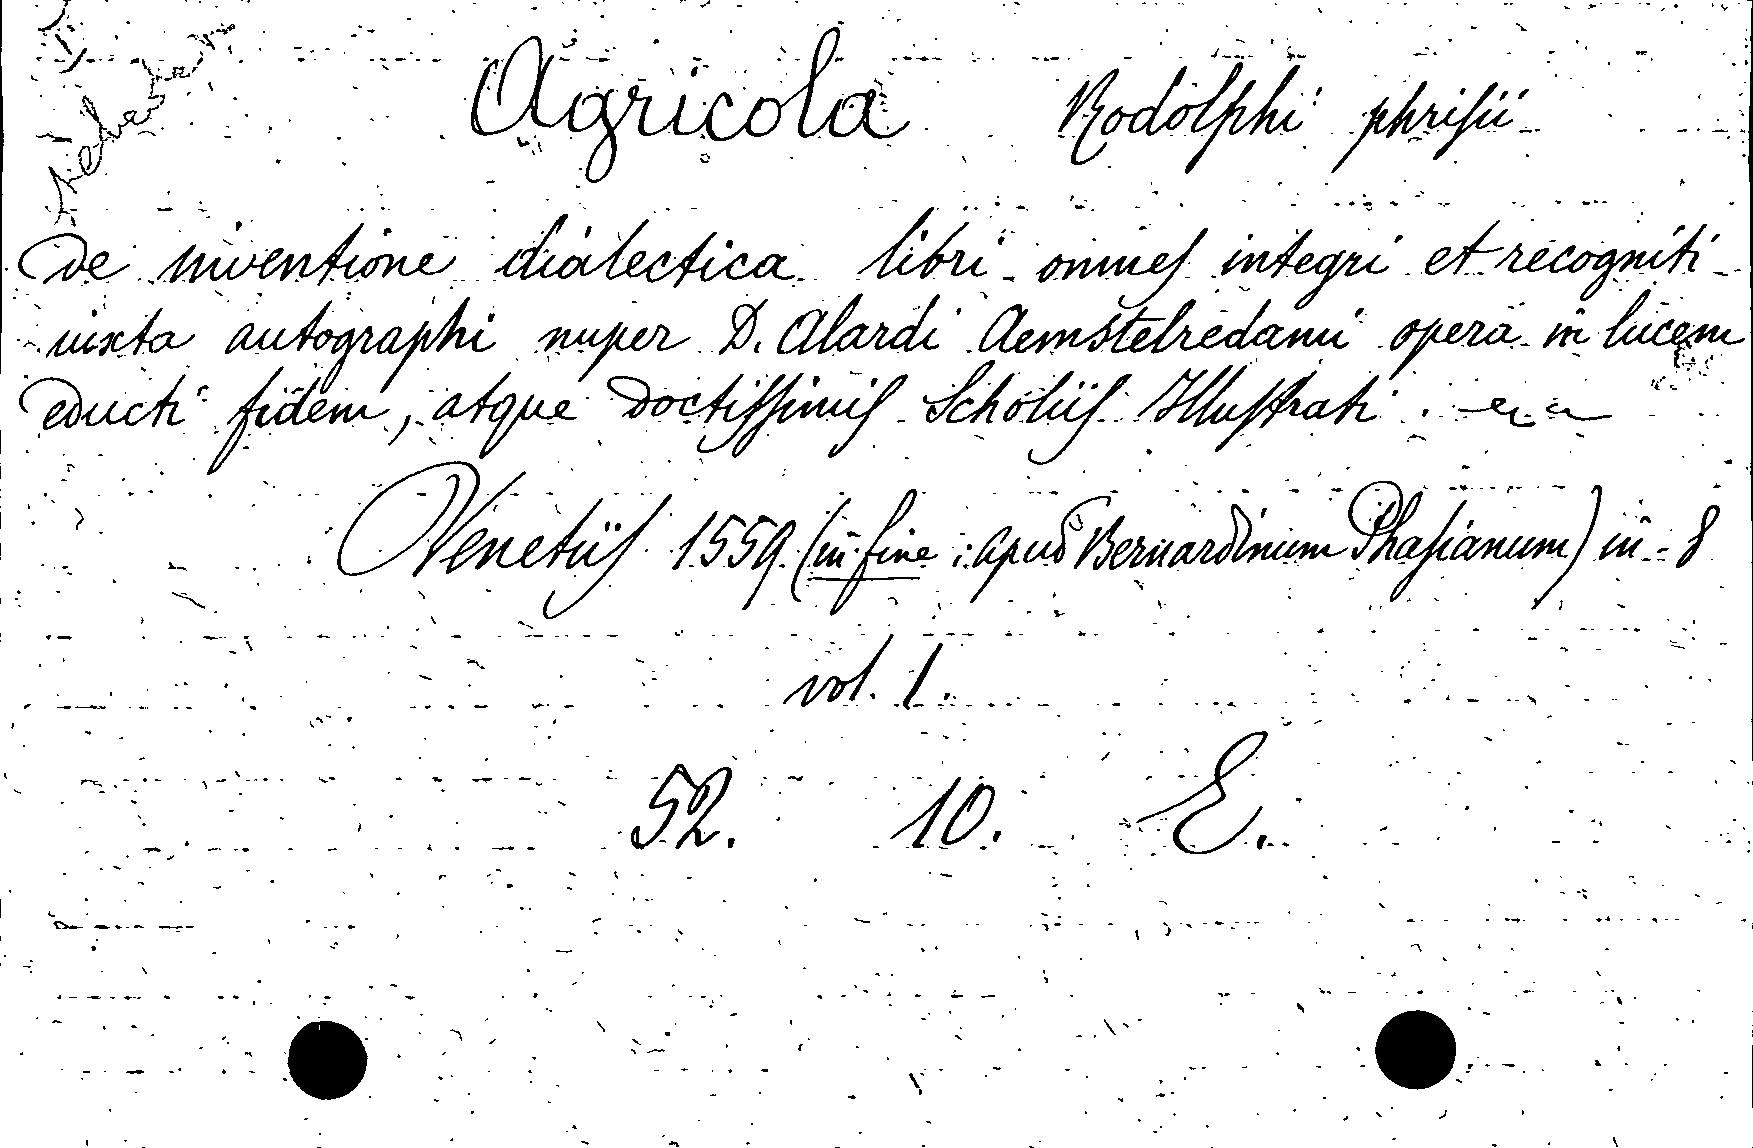 Agricola Rodolphi phrisii
De inventione dialectica libri omnes integri et recogniti
iuxta autographi nuper D. Alardi Aemstelredami opera in lucem
educti fidem, atque doctissimis Scholiis Illustrati.
Venetiis 1559. (in fine: apud Bernardinum Phasianum) in-8
vol. 1.
52. 10. E.